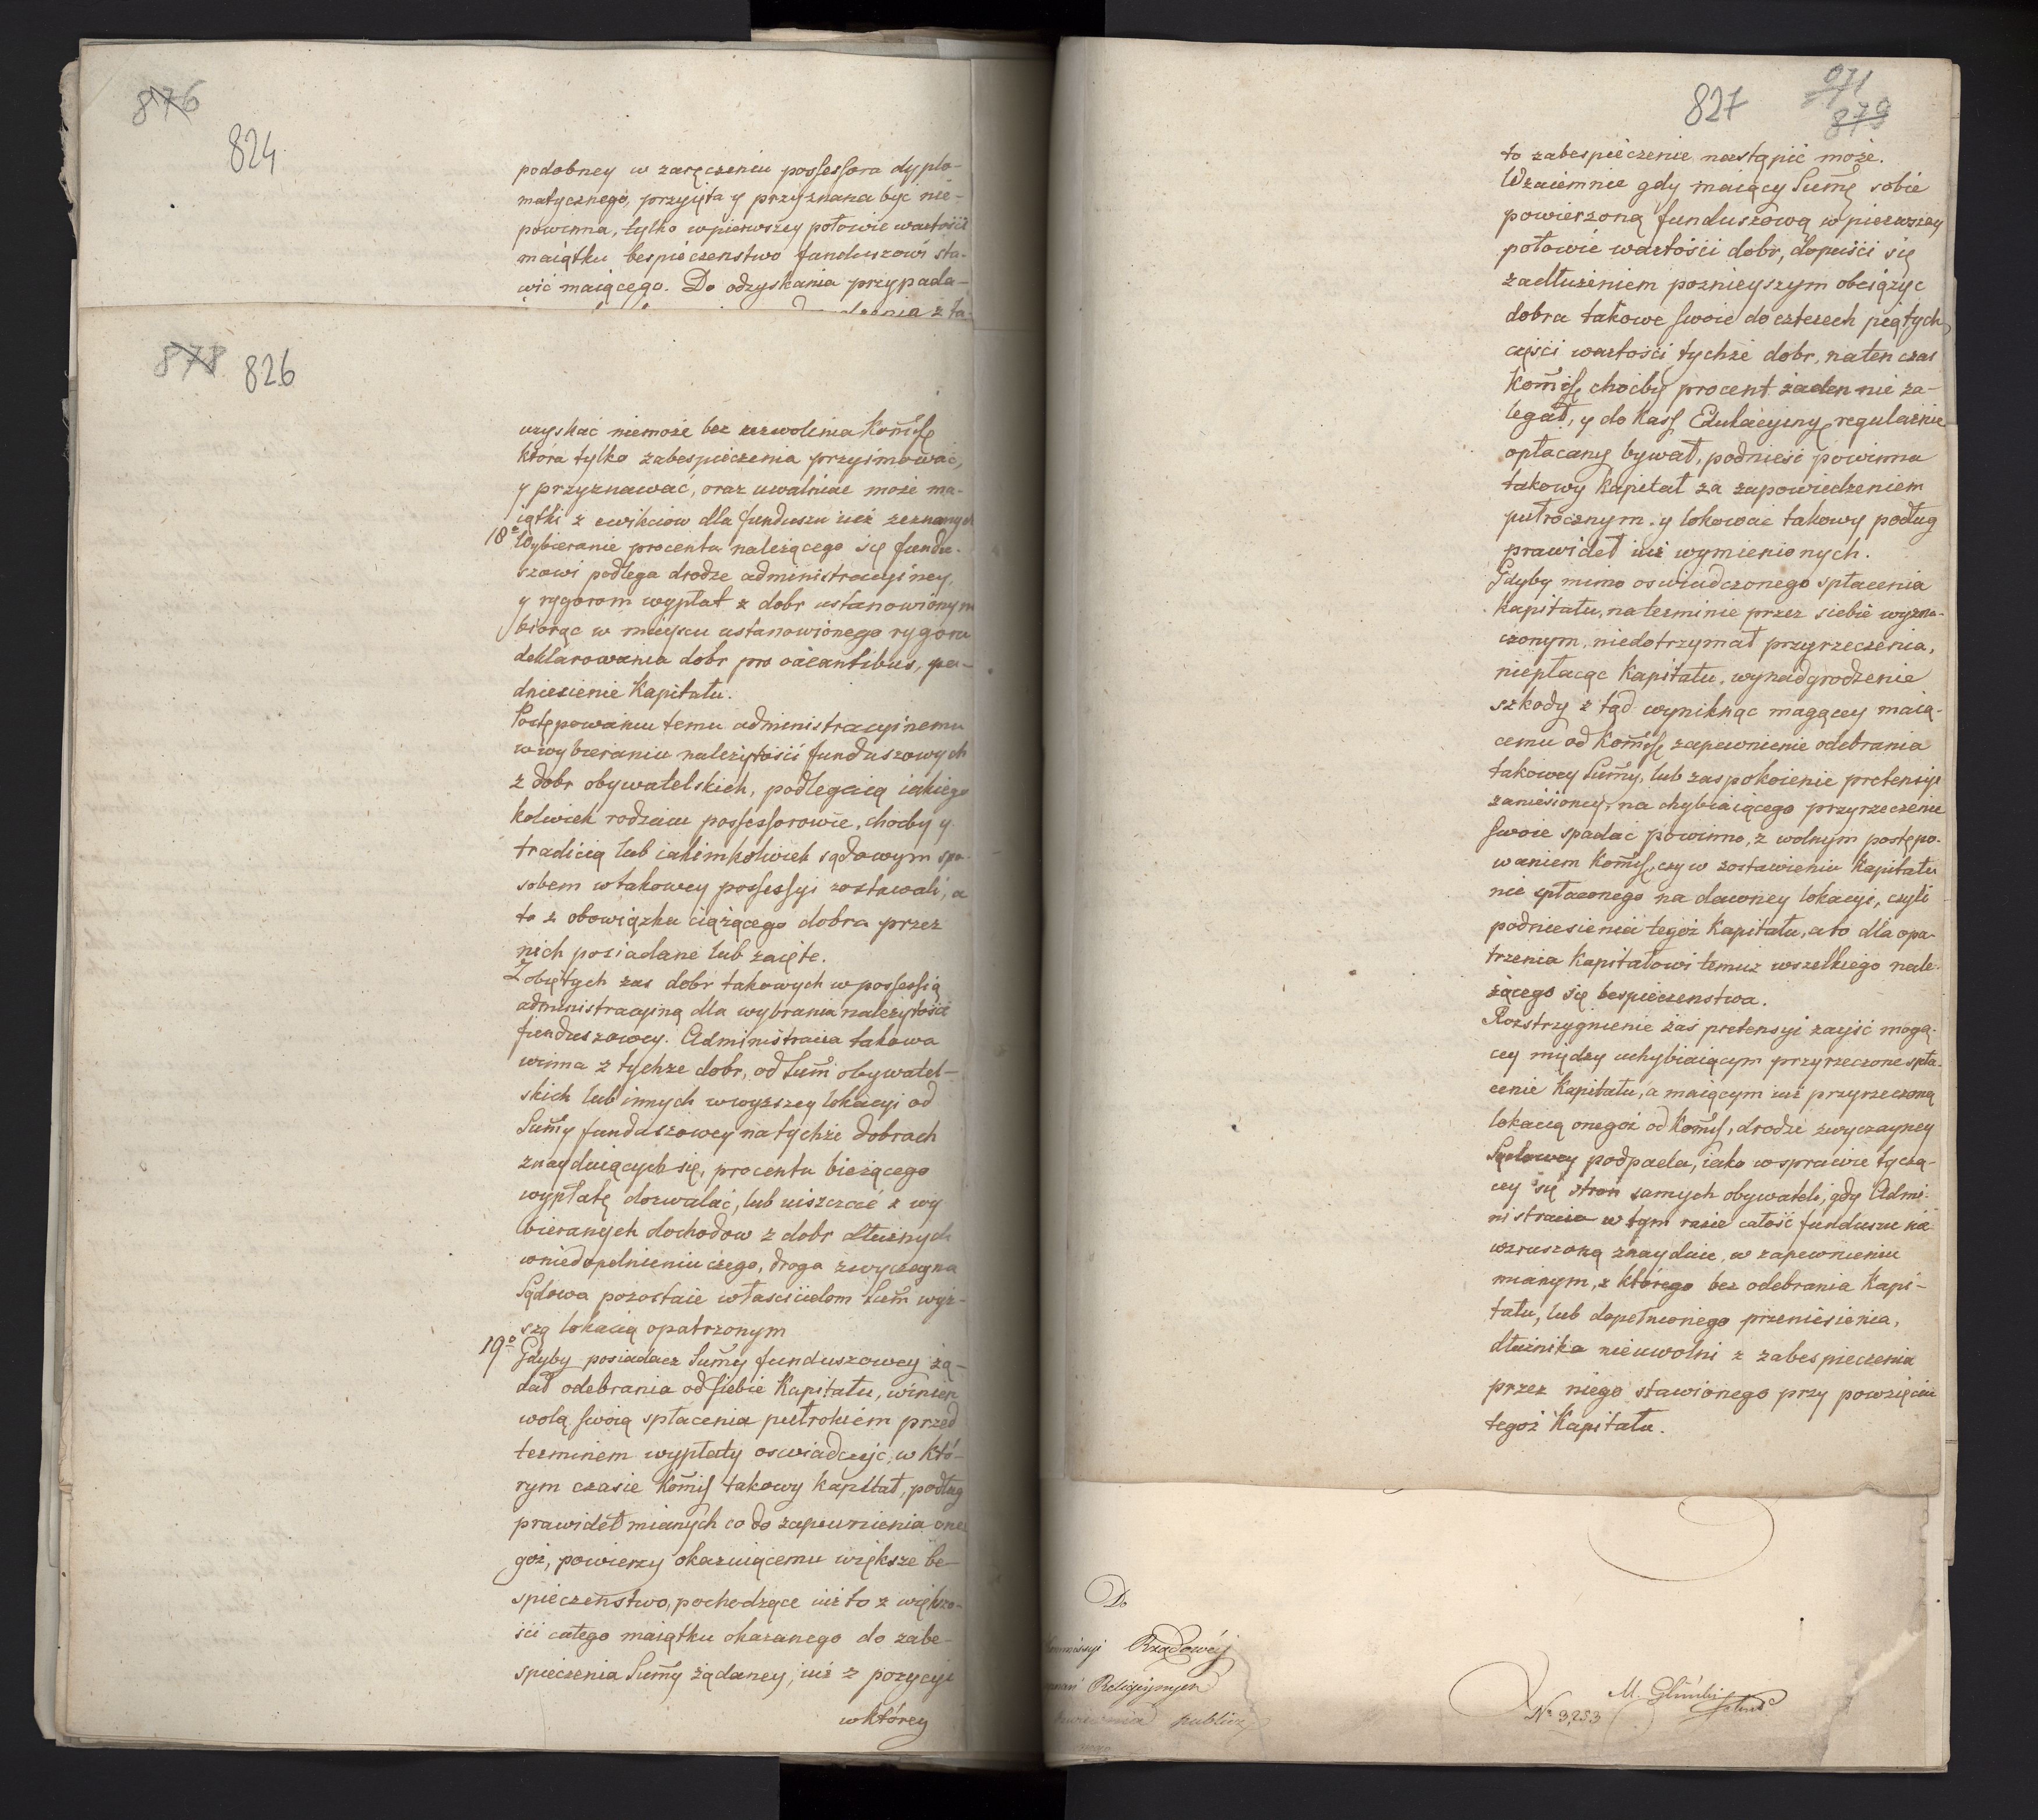 876
824
podobney w zaręczeniu possessora dyplo-
matycznego, przyięta y przyznana być nie-
powinna, tylko w pierwszey połowie wartości
maiątku bespieczenstwo funduszowi sta-
wić maiącego. Do odzyskania przypada-
878 826
uzyskać niemoże bez zezwolenia Kom̃iss
która tylko zabespieczenia przyimować,
y przyznawać, oraz uwalniać może ma-
iątki z ewikciow dla funduszu iuż zeznanych
18o Wybieranie procentu należącego się fundu-
szowi podlega drodze administracyiney,
y rygorom wypłat z dobr ustanowionym
biorąc w mieyscu ustanowionego rygoru
deklarowania dobr pro vacantibus, po-
dniesienie Kapitału.
Postępowaniu temu administracyinemu
w wybieraniu należytości funduszowych
z dobr obywatelskich, podlegaią iakiego
kolwiek rodzaiu possessorowie, choćby y
tradicią lub iakimkolwiek sądowym spo-
sobem w takowey possessyi zostawali, a
to z obowiązku ciążącego dobra przez
nich posiadane lub zaięte.
Z obiętych zas dobr takowych w possessią
administracyiną dla wybrania należytości
funduszowey. Administracia takowa
winna z tychze dobr, od Sum̃ obywatel-
skich lub innych w wyższey lokacyi od
Sum̃y funduszowey na tychże dobrach
znayduiących się, procentu bieżącego
wypłatę dozwalać, lub uiszczać z wy
bieranych dochodow z dobr dłużnych
w niedopełnieniu czego, droga zwyczayna
Sądowa pozostaie właścicielom Sum̃ wyż-
szą lokacią opatrzonym
19o Gdyby posiadacz Sum̃y funduszowey żą-
dał odebrania od siebie Kapitału, winien
wolą swoią spłacenia pułrokiem przed
terminem wypłaty oswiadczyć, w któ-
rym czasie Kom̃iss takowy Kapitał, podług
prawideł mianych co do zapewnienia one
goż, powierzy okazuiącemu większe be-
spieczeństwo, pochodzące iuż to z większo-
ści całego maiątku okazanego do zabe-
spieczenia Sum̃y żądaney, iuż z pozycyi
w którey
827
871
879
to zabespieczenie nastąpić może.
Wzaiemnie gdy maiący Sum̃ę sobie
powierzoną funduszową w pierwszey
połowie wartości dobr, dopuści się
zadłużeniem poznieyszym obciążyć
dobra takowe swoie do czterech piątych
części wartości tychże dobr, naten czas
Kom̃iss choćby procent żaden nie za-
legał, y do Kass Edukacyiney regularnie
opłacany bywał, podnieść powinna
takowy Kapitał za zapowiedzeniem
pułrocznym. y lokować takowy podług
prawideł iuż wymienionych.
Gdyby mimo oswiadczonego spłacenia
Kapitału, na terminie przez siebie wyzna-
czonym, niedotrzymał przyrzeczenia,
niepłacąc Kapitału, wynadgrodzenie
szkody z tąd wyniknąc mogącey maią-
cemu od Kom̃iss zapewnienie odebrania
takowey Sum̃y, lub zaspokoienie pretensyi
zaniesioney, na chybiaiącego przyrzeczenie
swoie spadać powinno, z wolnym postępo-
waniem Kom̃iss, czy w zostawieniu Kapitału
nie spłaconego na dawney lokacyi, czyli
podniesienia tegoż Kapitału, a to dla opa-
trzenia Kapitałowi temuż wszelkiego nale-
żącego się bespieczenstwa.
Rozstrzygnienie zaś pretensyi zayść mogą-
cey między uchybiaiącym przyrzeczone spła-
cenie Kapitału, a maiącym iuż przyrzeczoną
lokacią onegoż od Kom̃iss, drodze zwyczayney
Sądowey podpada, iako w sprawie tyczą-
cey się stron samych obywateli, gdy Admi-
nistracia w tym razie całość funduszu nie
wzruszoną znayduie, w zapewnieniu
mianym, z którego bez odebrania Kapi-
tału, lub dopełnionego przeniesienia,
dłużnika nieuwolni z zabespieczenia
przez niego stawionego przy powzięciu
tegoż Kapitału.
Do
Rządowéy
Religijnych
publicz
No 3,253